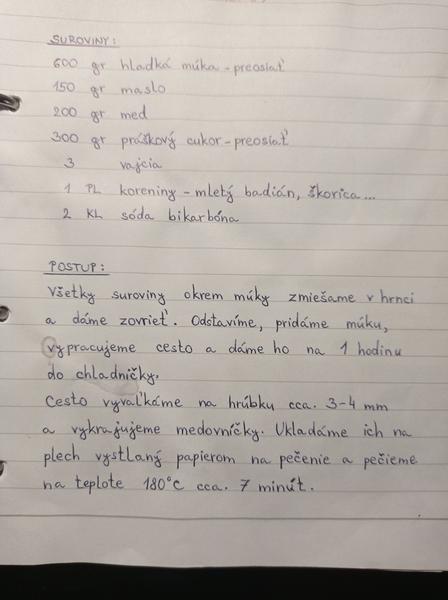 SUROVINY:
600 gr hladká múka - preosiať
150 gr maslo
200 gr med
300 gr práškový cukor - preosiať
3 vajcia
1 PL koreniny - mletý badián, škorica...
2 KL sóda bikarbóna
POSTUP:
Všetky suroviny okrem múky zmiešame v hrnci
a dáme zovrieť. Odstavíme, pridáme múku,
vypracujeme cesto a dáme ho na 1 hodinu
do chladničky.
Cesto vyvaľkáme na hrúbku cca. 3-4 mm
a vykrajujeme medovníčky. Ukladáme ich na
plech vystlaný papierom na pečenie a pečieme
na teplote 180°C cca. 7 minút.